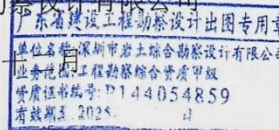 察设计有限公司
广东省建设工程勘察设计出图专用章
单位名称:深圳市岩土综合勘察设计有限公司
业务范围:工程勘察综合资质甲级
十 月
资质证书编号:B144054859
有效期至:2025